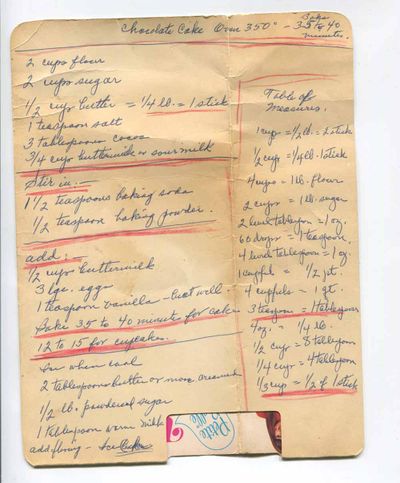 Chocolate Cake Oven 350° - Bake 35 to 40 minutes.
2 cups flour
2 cups sugar
1/2 cup butter = 1/4 lb. = 1 stick
1 teaspoon salt
3 tablespoons cocoa
3/4 cup buttermilk or sour milk
Stir in. -
1 1/2 teaspoons baking soda
1/2 teaspoon baking powder.
add. -
1/2 cup buttermilk
3 lge. eggs
1 teaspoon vanilla - beat well
Bake 35 to 40 minute for cake
12 to 15 for cupcakes.
when cool
2 tablespoons butter or more creamed
1/2 lb. powdered sugar
1 tablespoon warm milk
add flavoring -
Table of
Measures.
1 cup = 1/2 lb. = 2 stick
1/2 cup = 1/4 lb. 1 stick
4 cups = 1 lb. flour
2 cups = 1 lb. sugar
2 level tablespoon = 1 oz.
60 drops = 1 teaspoon.
4 level tablespoon = 1 oz.
1 cupful = 1/2 pt.
4 cupfuls = 1 qt.
3 teaspoon = 1 tablespoon
4 oz. = 1/4 lb.
1/2 cup = 8 tablespoon
1/4 cup = 4 tablespoon
1/3 cup = 1/2 of 1 stick
Petite